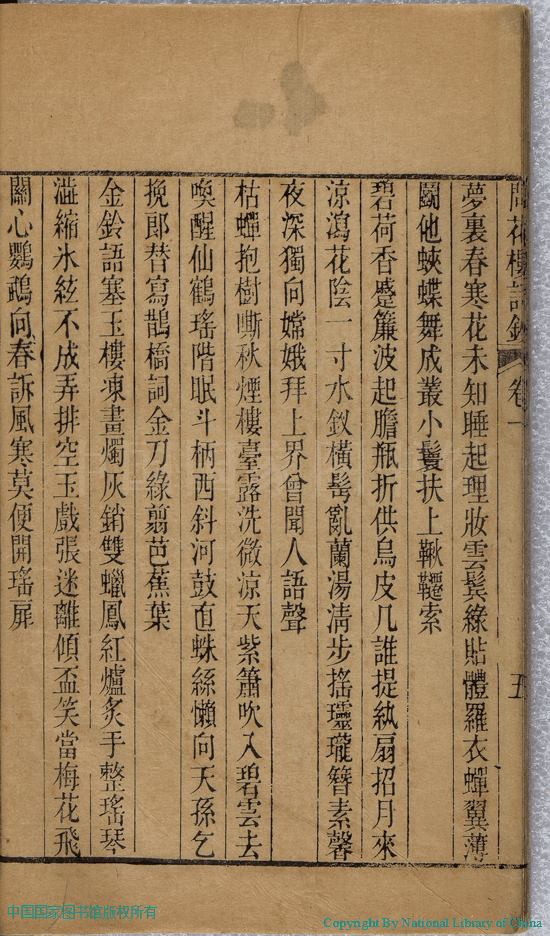 問花樓詩鈔 卷一 五
夢裏春寒花未知睡起理妝雲鬓綠貼體羅衣蟬翼薄
鬭他蛺蝶舞成叢小鬟扶上鞦韆索
碧荷香蹙簾波起膽瓶折供烏皮几誰提紈扇招月來
涼瀉花陰一寸水釵橫髩亂蘭湯淸步搖瓏瓏簪素馨
夜深獨向嫦娥拜上界曾聞人語聲
枯蟬抱樹嘶秋煙樓臺露洗微涼天紫簫吹入碧雲去
喚醒仙鶴瑤階眠斗柄西斜河鼓直蛛絲懶向天孫乞
挽郎替寫鵲橋詞金刀綠翦芭蕉葉
金鈴語塞玉樓凍畫燭灰銷雙蠟鳳紅爐炙手整瑤琴
澁縮氷絃不成弄排空玉戲張迷離傾盃笑當梅花飛
關心鸚鵡向春訴風寒莫便開瑤扉
中国国家图书馆版权所有
Copyright By National Library of China